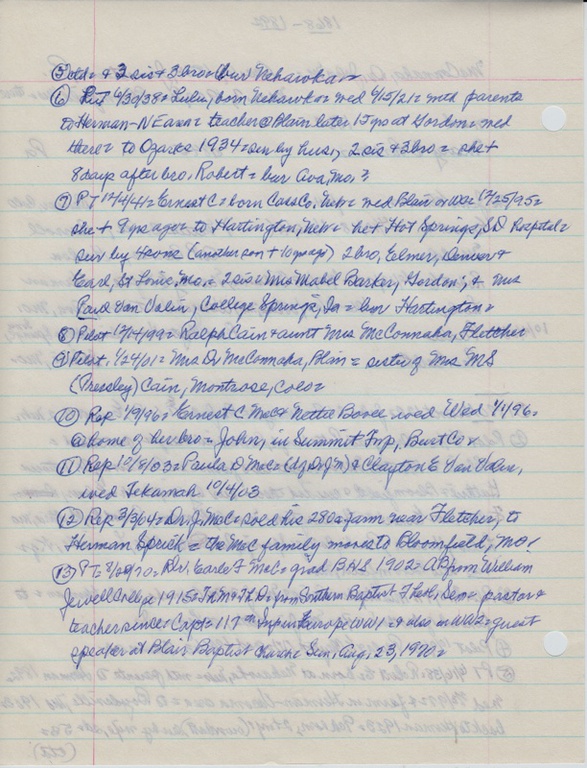 ⑤ ctd = & 2 sis & 3 bro = bur Nehawka =
⑥ PT 6/30/38 = Lulu, born Nehawka = wed 4/15/21 = mtd parents
to Herman - N E area = teacher @ Blair later 15 yrs at Gordon = wed
there = to Ozarks 1934 = sur by hus, 2 sis & 3 bro = she +
8 days after bro, Robert = bur Ava, Mo. =
⑦ PT 12/4/41 = Ernest C = born Cass Co, Neb = wed Blair on 12/25/95 =
she + 9 yrs ago = to Hartington, Neb = he + Hot Springs, SD Hospital =
sur by 4 sons (another son + 10 yrs ago) 2 bro, Elmer, Denver &
Earl, St Louis, Mo. = 2 sis = Mrs Mabel Barker, Gordon, & Mrs
Paul Van Valin, College Springs, Ia = bur Hartington =
⑧ Pilot 12/14/99 = Ralph Cain & aunt Mrs McConnaha, Fletcher
⑨ Pilot, 1/24/01 = Mrs Dr McConnaha, Blair = sister of Mrs MS
(Pressley) Cain, Montrose, Colo =
⑩ Rep 1/9/96 = Ernest C McC & Nettie Bovee wed Wed 1/1/96 =
@ home of her bro = John, in Summit Twp, Burt Co =
⑪ Rep 10/8/03 = Paula D McC = (d/Dr J M) & Clayton E Van Valin,
wed Tekamah 10/4/03
⑫ Rep 3/3/04 = Dr J McC = sold his 280a farm near Fletcher, to
Herman Sprick = the McC family moves to Bloomfield, Mo!
⑬ PT = Rev. Earle F McC = grad BHS 1902 = AB from William
Jewell College 1915 = ThM & ThD = from Southern Baptist Theol, Sem = pastor &
teacher since = Capt = 117th in Europe WW1 = & also in WW2 = guest
speaker at Blair Baptist Church Sun, Aug, 23, 1970 =